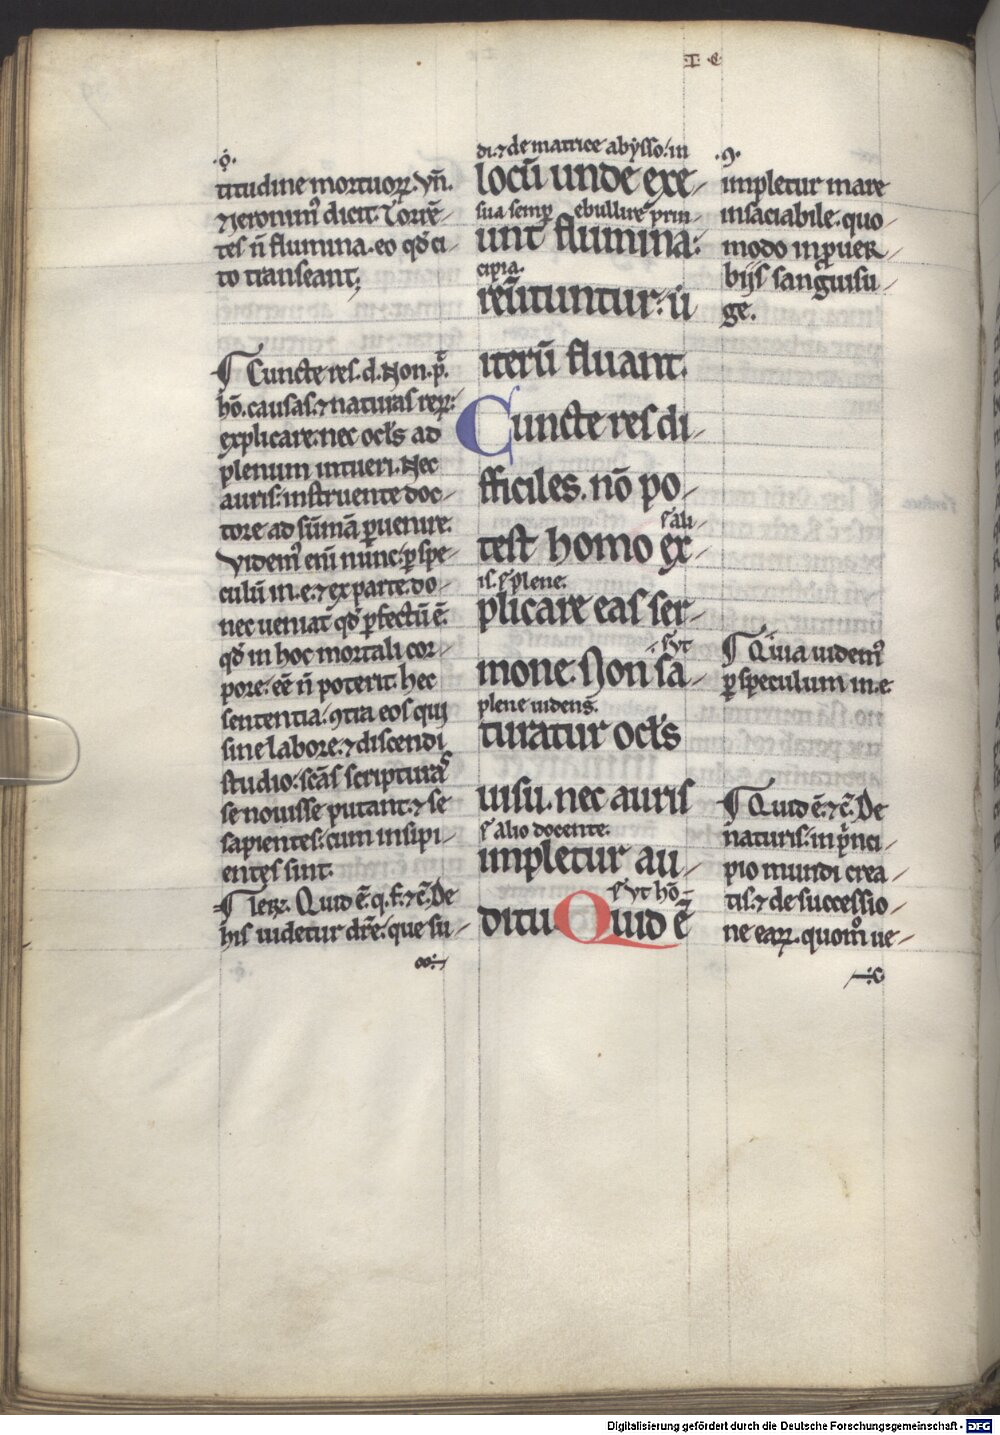 ·I· ·C·
·ỏ·
titudine mortuoꝝ. Vn̄.
ꝫeronim᷒ dicit. Torrē-
tes n̄ flumina. eo qđ ci-
to transeant;
¶ Cuncte res. d. Non. p̄.
hō. causas. ⁊ naturas reꝝ.
explicare. nec ocl̓s ad
plenum intueri. Nec
auris. instruente doc-
tore ad sūmā ꝑuenire.
Videm᷒ eni nunc. ꝑ spe-
culū in. e. ⁊ ex parte. do-
nec ueniat qđ ꝑfectū ē.
qđ in hoc mortali cor-
pore. eē n̄ poterit. hec
sententia. ꝯtra eos qui
sine labore. ⁊ discendi
studio. scās scripturas
se nouisse putant. ⁊ se
sapientes. cum insipi-
entes sint.
¶ Ieꝝ. Quid ē. q. f. ⁊ c̄. De
his uidetur dr̄e. que su-
di. ⁊ de matrice abysso. in
locū unde exe-
sua semp̱ ebullire prin-
unt flumina.
cipia.
reūtuntur. ū
iterū fluant.
Cuncte res di-
fficiles. nō po-
.s. ali-
test homo ex-
is. s. plene.
plicare eas ser-
.s. Vt
mone. Non sa-
plene uidens.
turatur ocl̓s
uisu. nec auris
s. alio docente.
impletur au-
s. Vt hō-
ditu Quid ē
·ꝯ·
impletur mare
insaciabile. quo-
modo in ꝓuer-
bijs sanguisu-
ge.
¶ Quia uidem᷒
ꝑ speculum in. e.
¶ Quid ē. ⁊ c̄. De
naturis. in pͥnci-
pio mundi crea-
tis. ⁊ de successio-
ne eaꝝ. quom̊ ue-
Digitalisierung gefördert durch die Deutsche Forschungsgemeinschaft - DFG